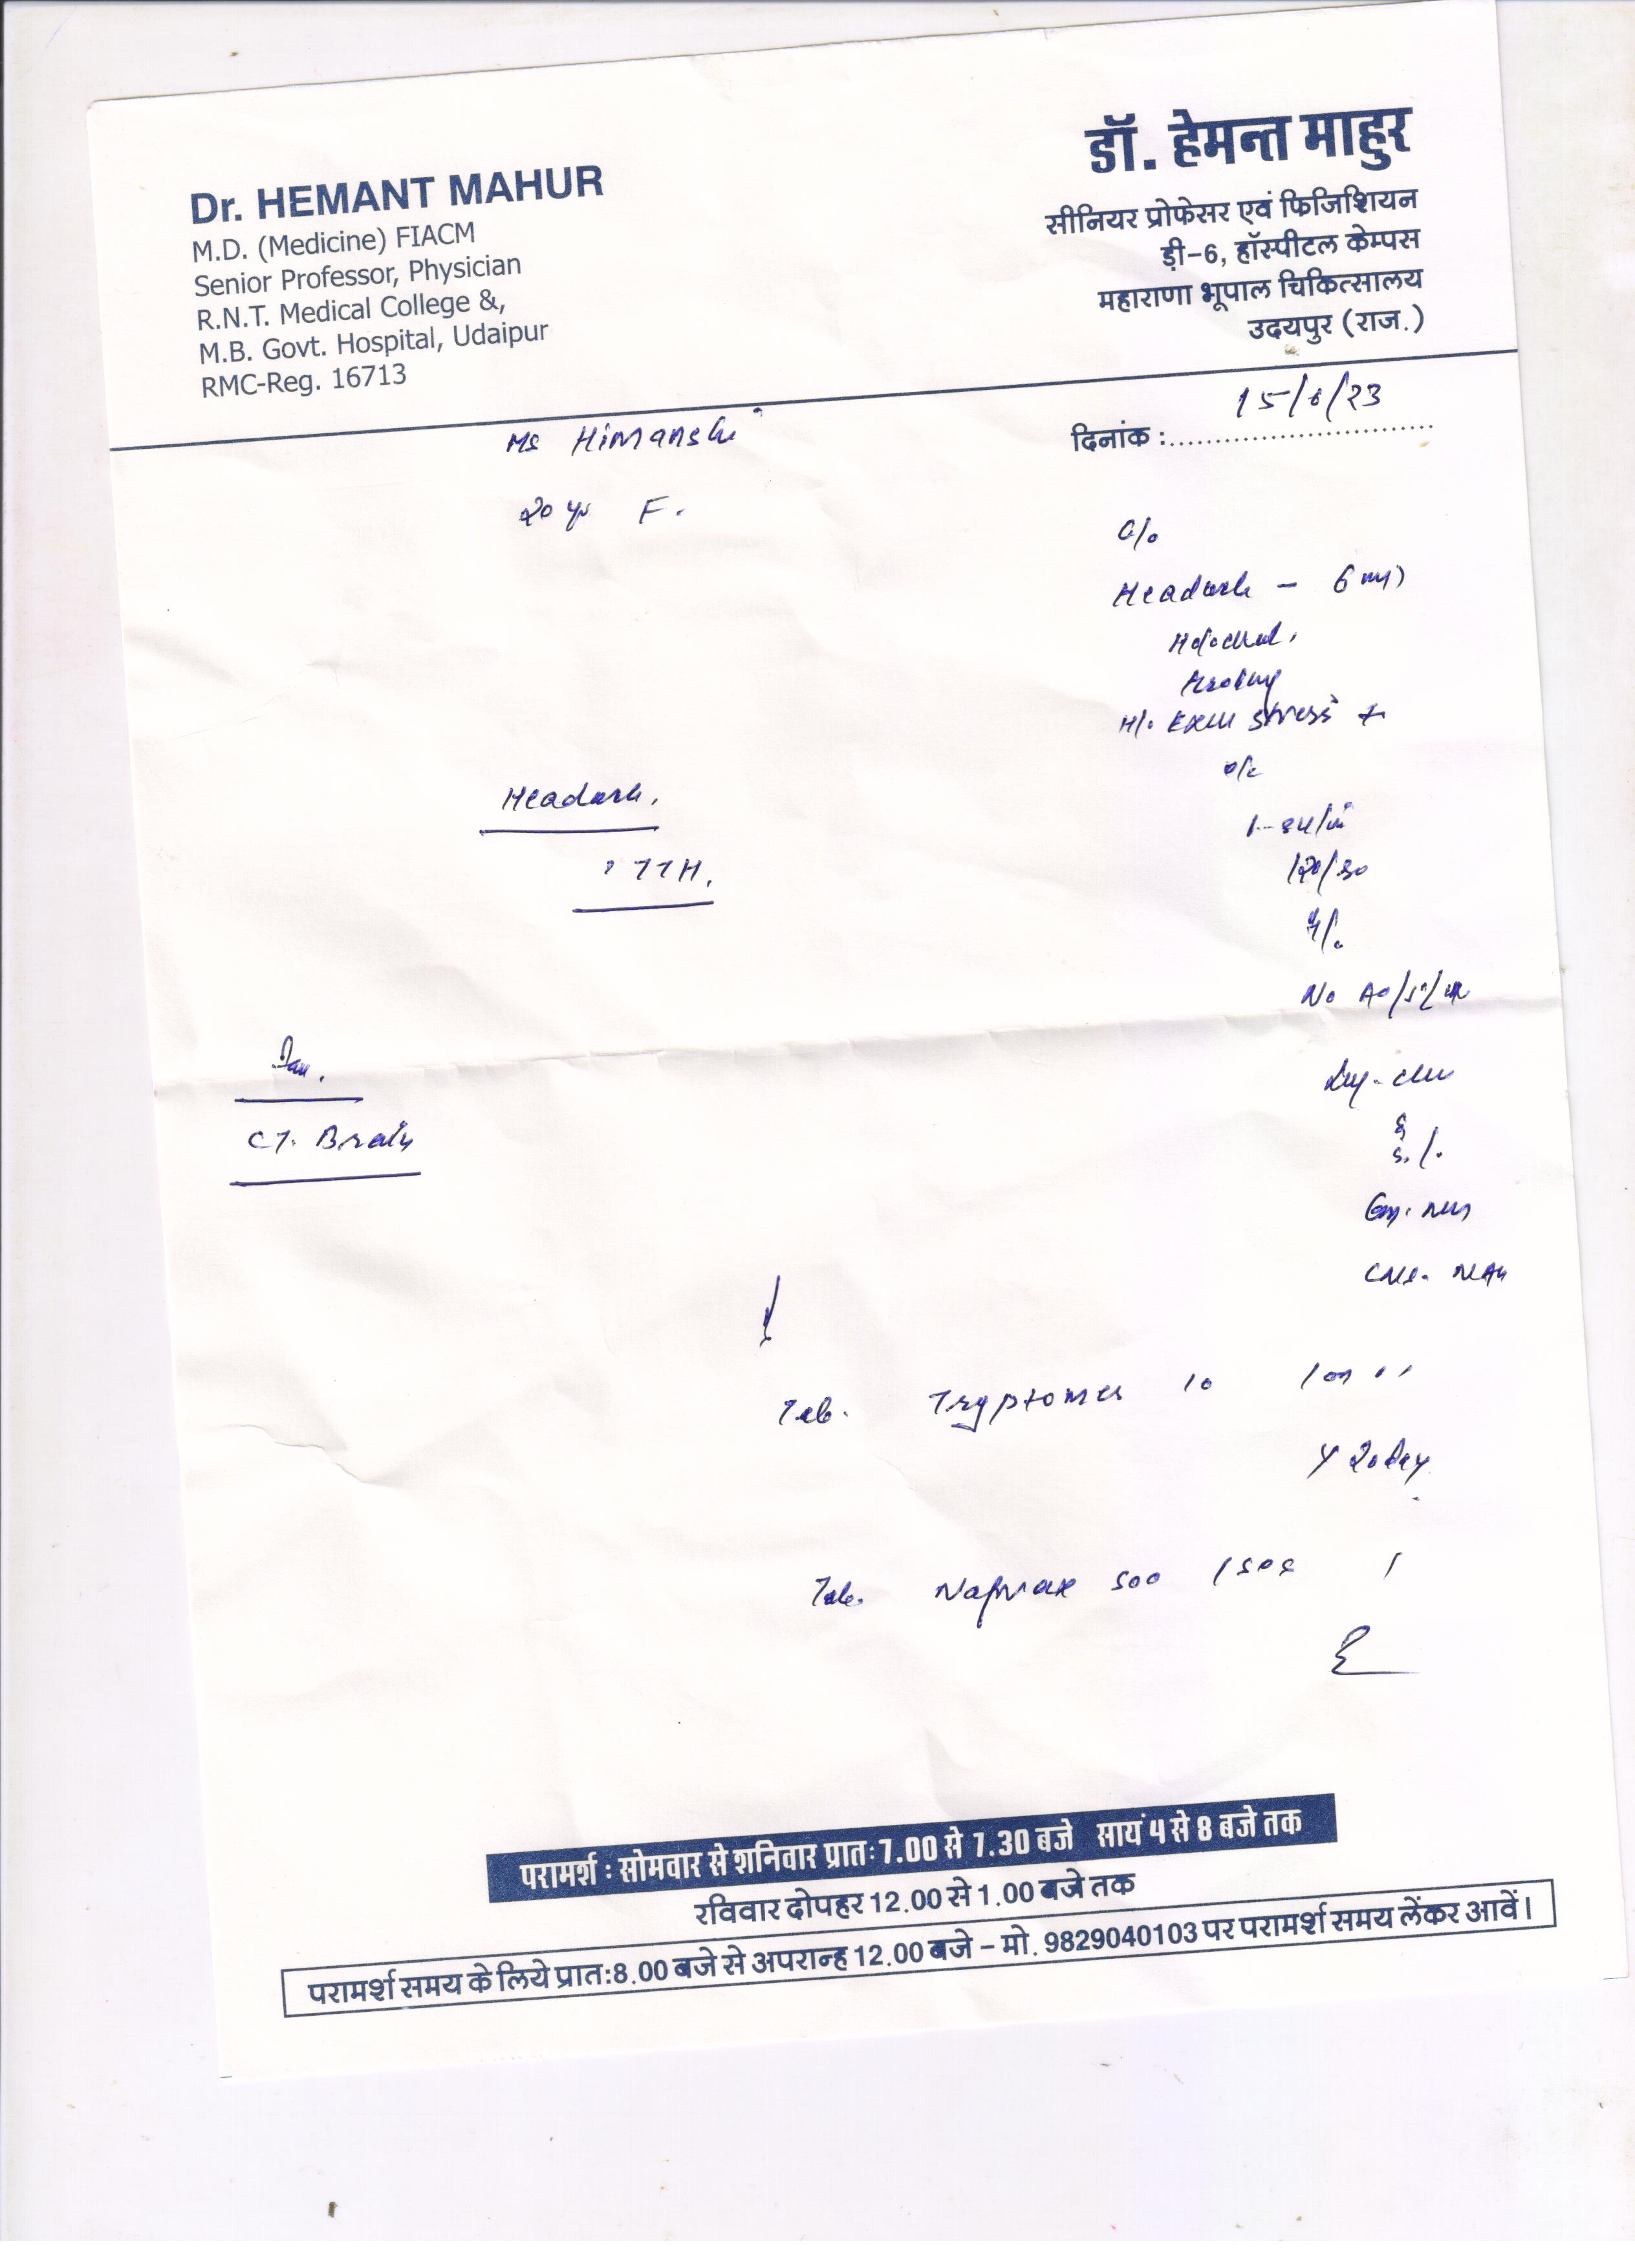 Dr. HEMANT MAHUR
M.D. (Medicine) FIACM
Senior Professor, Physician
R.N.T. Medical College &,
M.B. Govt. Hospital, Udaipur
RMC-Reg. 16713
डॉ. हेमन्त माहुर
सीनियर प्रोफेसर एवं फिजिशियन
ड़ी-6, हॉस्पीटल केम्पस
महाराणा भूपाल चिकित्सालय
उदयपुर (राज.)
दिनांक : 15/6/23
Ms Himanshi
20 yr F.
C/o
Headache - 6 m
H/o Exam stress +
O/E
120/80
No
Headache.
? TTH.
CT. Brain
Tab. Tryptomer 10
X 20 day
Tab. Naprox 500 1 SOS
परामर्श : सोमवार से शनिवार प्रातः 7.00 से 7.30 बजे सायं 4 से 8 बजे तक
रविवार दोपहर 12.00 से 1.00 बजे तक
परामर्श समय के लिये प्रात:8.00 बजे से अपरान्ह 12.00 बजे - मो. 9829040103 पर परामर्श समय लेंकर आवें।